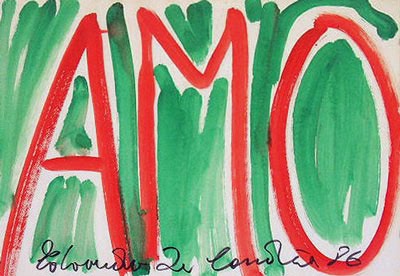 AMO
Edoardo De Candia 86